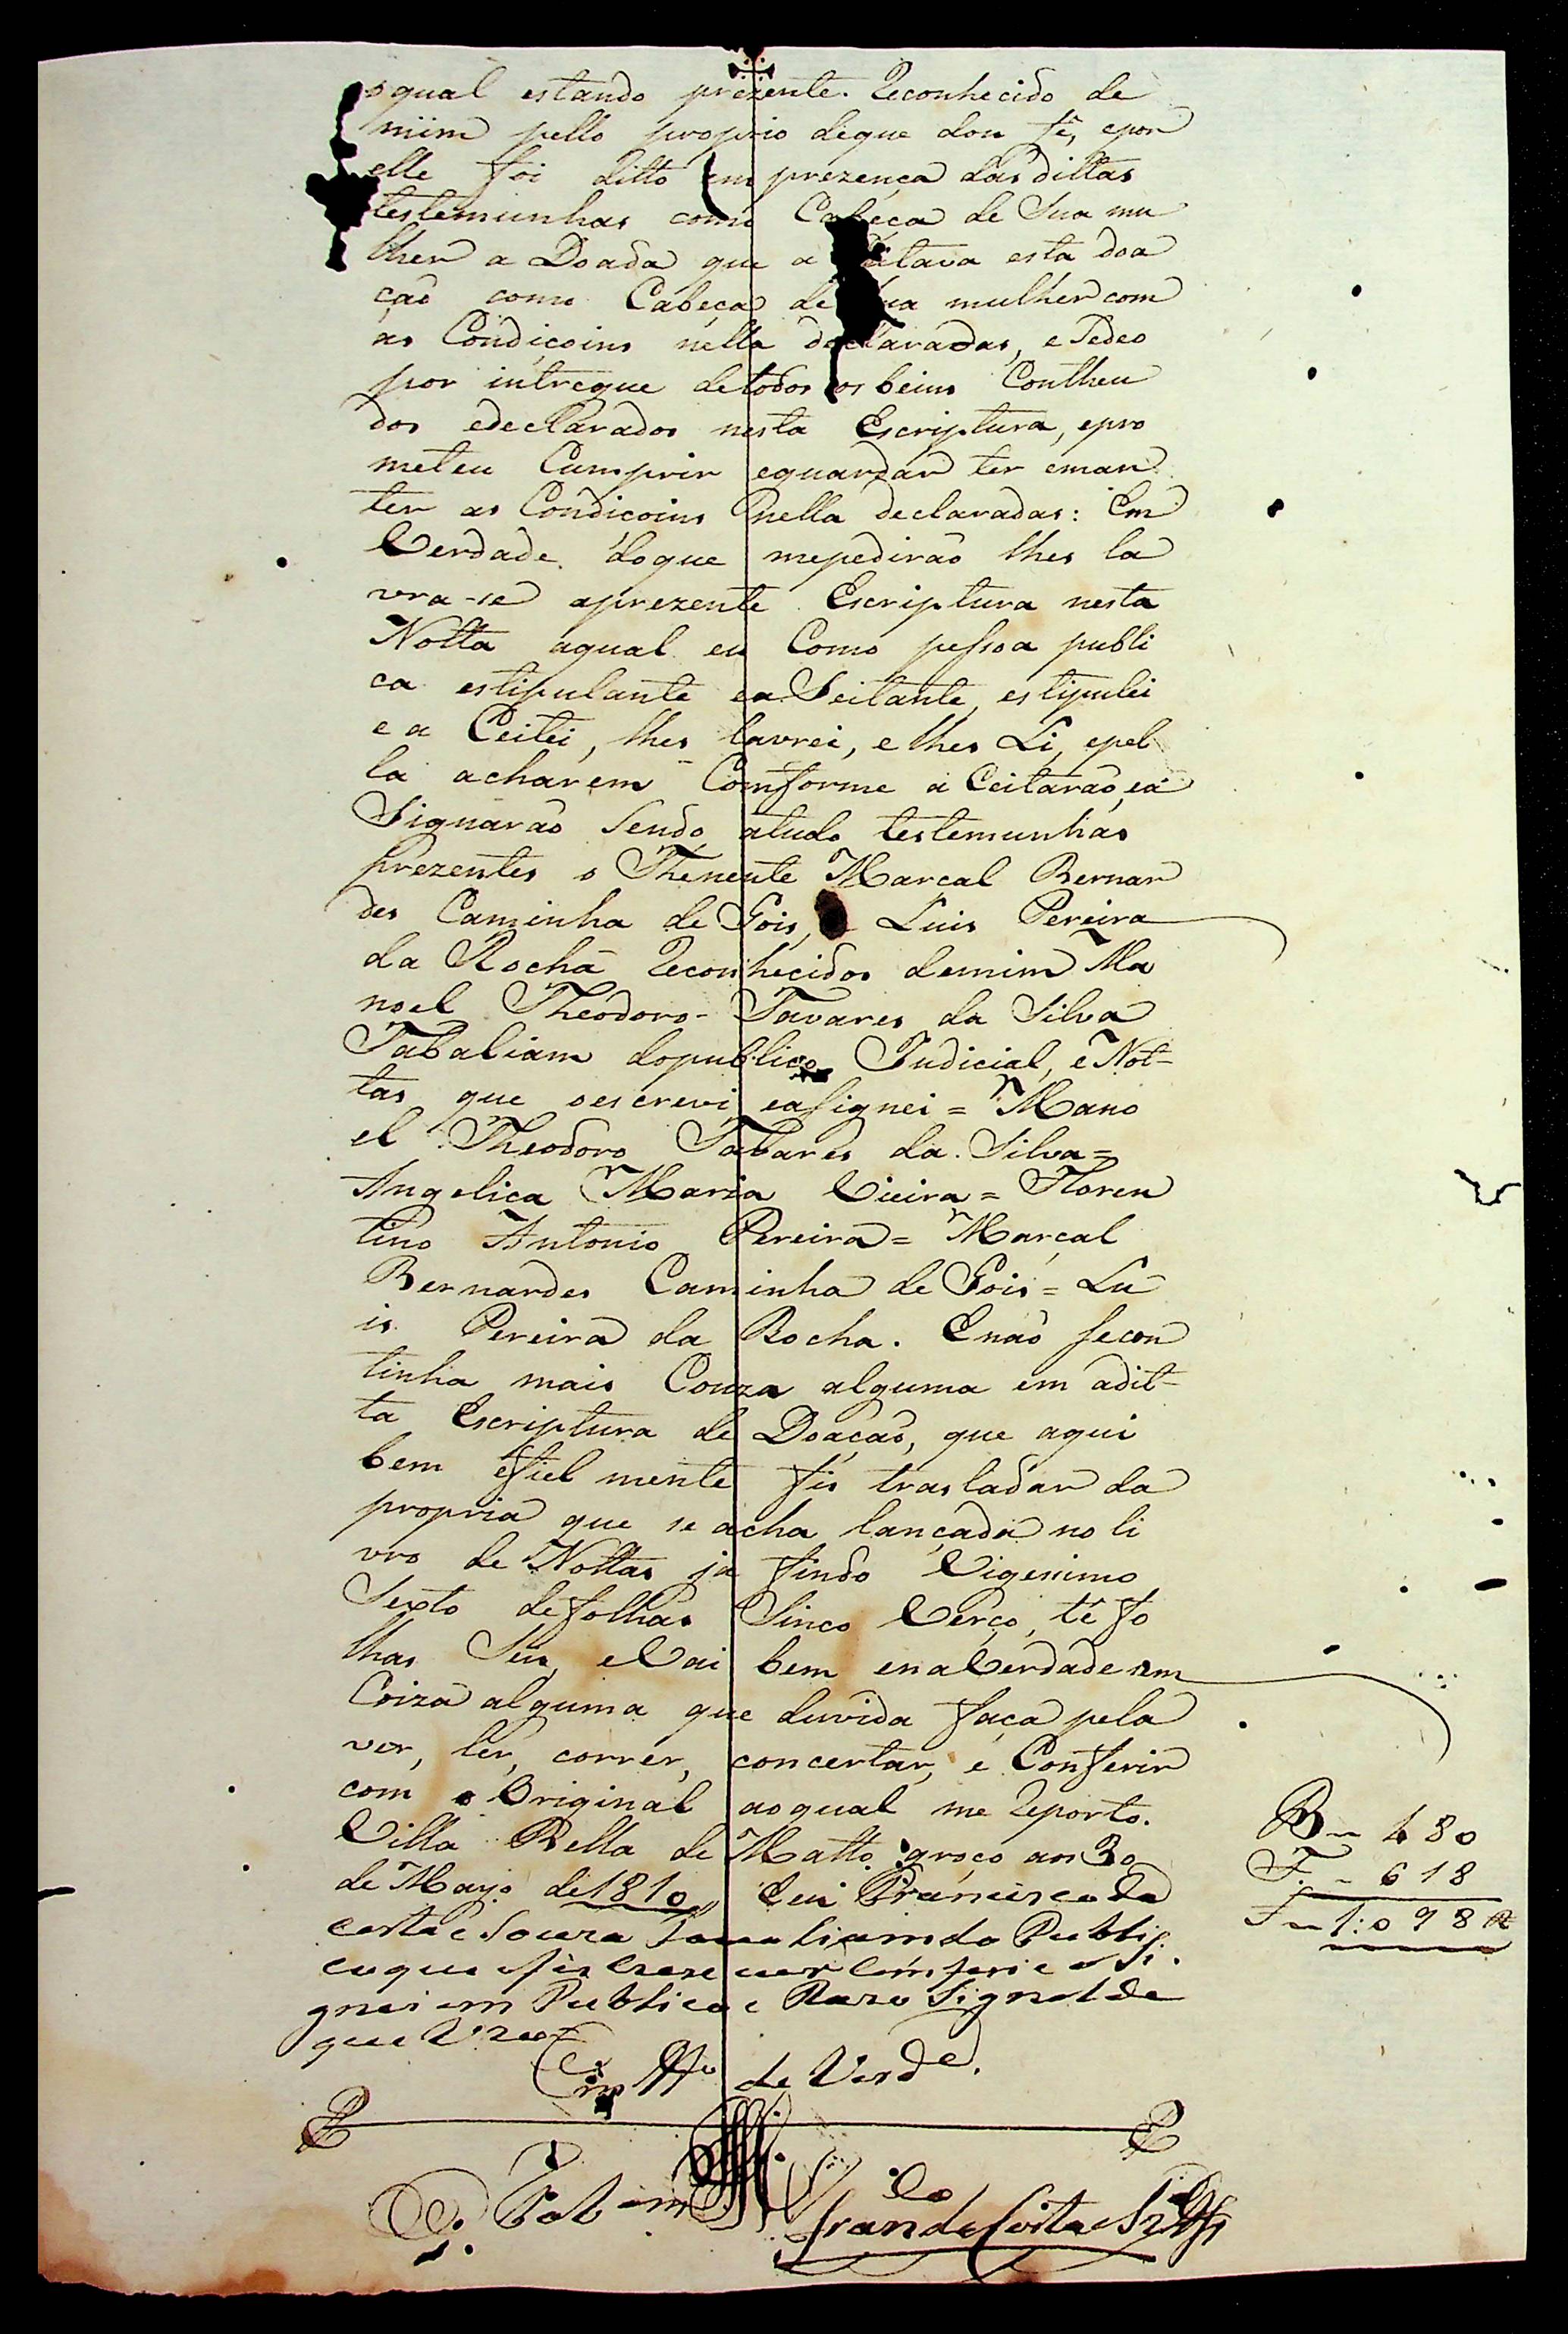 o qual estando prezente. Reconhecido de
miim pello proprio deque dou fé, epor
elle foi ditto em prezença das dittas
testemunhas como Cabeça de Sua mu
lher a Doada que a tava esta doa
çaõ como Cabeça de mulher com
as Condiçoins nella declaradas, e Sedeo
por intregue detodos os beins Contheu
dos edeclarados nesta Escriptura, epro
meteu Cumprir eguardar ter eman
ter as Condiçoins nella declaradas: Em
Verdade doque mepediraõ lhes la
vra-se aprezente Escriptura nesta
Notta aqual eu Como pessoa publi
ca estipulante ea Seitante, estipulei
e a Ceitei, lhes lavrei, e lhes Li, epel
la acharem Comforme a Ceitaraõ, ea
Signaraõ Sendo atudo testemunhas
prezentes o Thenente Marcal Bernar
des Caminha de Gois, e Luis Pereira
da Rocha Reconhecidos demim Ma
noel Theodoro Tavares da Silva
Tabaliam dopublico Judicial, e Not=
tas que oescrevi eaSignei = Mano
el Theodoro Tabares da Silva =
Angelica Maria Vieira = Floren
tino Antonio Pereira = Marçal
Bernardes Caminha de Gois = Lu
is Pereira da Rocha. Enaõ secon
tinha mais Couza alguma em adit=
ta Escriptura de Doaçaõ, que aqui
bem efiel mente fis trasladar da
propria que se acha lançada no li
vro de Nottas ja findo Vigesimo
Sexto defolhas Sinco Verço, té fo
lhas Seis, eVai bem enaVerdade sem
Coiza alguma que duvida faça pela
ver, ler, correr, concertar, e Conferir
com o Original aoqual me Reporto.
Villa Bella de Matto groço aos 30
de Mayo de 1810 Eeu Francisco da
costa e Souza Tabaliam do Publi
co que o fis Escrever Comferi e aSi
gnei em Publico e Razo Signal de
que Uzo
Em Tto de Verde.
Fran.co da Costa e Sz.a
B ~ 480
F. ~ 618
S ~ 1:098 R